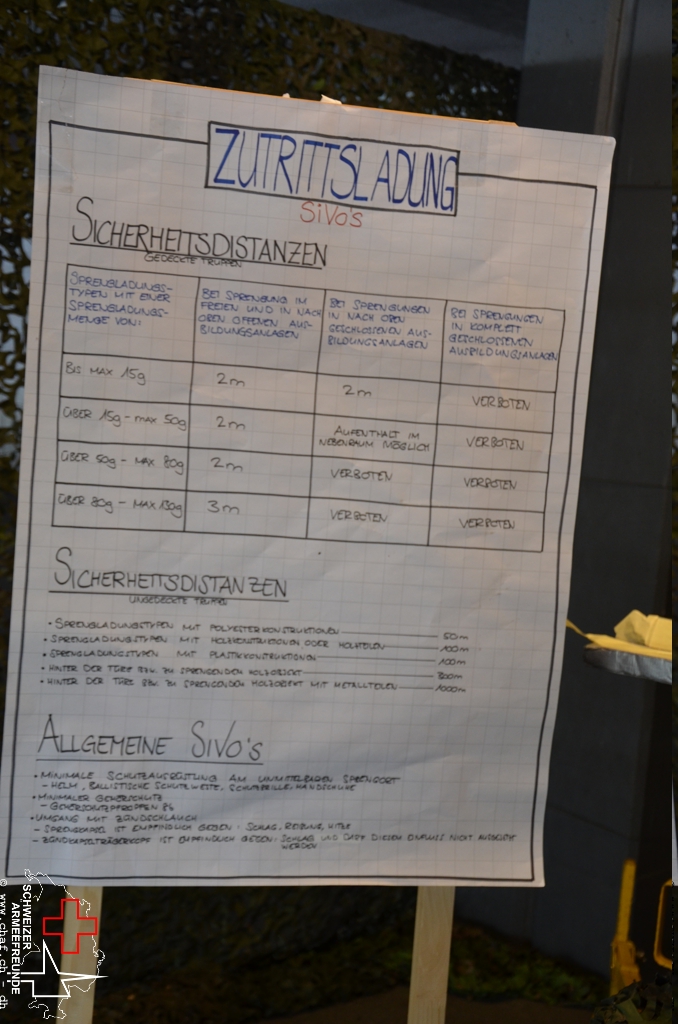 ZUTRITTSLADUNG
SiVo's
SICHERHEITSDISTANZEN
GEDECKTE TRUPPEN
SPRENGLADUNGS-
TYPEN MIT EINER
SPRENGLADUNGS-
MENGE VON:
BEI SPRENGUNG IM
FREIEN UND IN NACH
OBEN OFFENEN AUS-
BILDUNGSANLAGEN
BEI SPRENGUNGEN
IN NACH OBEN
GESCHLOSSENEN AUS-
BILDUNGSANLAGEN
BEI SPRENGUNGEN
IN KOMPLETT
GESCHLOSSENEN
AUSBILDUNGSANLAGEN
BIS MAX 15g
2m
2m
VERBOTEN
ÜBER 15g - MAX 50g
2m
AUFENTHALT IM
NEBENRAUM MÖGLICH
VERBOTEN
ÜBER 50g - MAX 80g
2m
VERBOTEN
VERBOTEN
ÜBER 80g - MAX 130g
3m
VERBOTEN
VERBOTEN
SICHERHEITSDISTANZEN
UNGEDECKTE TRUPPEN
• SPRENGLADUNGSTYPEN MIT POLYESTERKONSTRUKTIONEN 50m
• SPRENGLADUNGSTYPEN MIT HOLZKONSTRUKTIONEN ODER HOLZTEILEN 100m
• SPRENGLADUNGSTYPEN MIT PLASTIKKONSTRUKTIONEN 100m
• HINTER DER TÜRE BZW. ZU SPRENGENDEN HOLZOBJEKT 800m
• HINTER DER TÜRE BZW. ZU SPRENGENDEN HOLZOBJEKT MIT METALLTEILEN 1000m
ALLGEMEINE SiVo's
• MINIMALE SCHUTZAUSRÜSTUNG AM UNMITTELBAREN SPRENGORT
- HELM, BALLISTISCHE SCHUTZWESTE, SCHUTZBRILLE, HANDSCHUHE
• MINIMALER GEHÖRSCHUTZ
- GEHÖRSCHUTZPFROPFEN
• UMGANG MIT ZÜNDSCHLAUCH
- SPRENGKAPSEL IST EMPFINDLICH GEGEN: SCHLAG, REIBUNG, HITZE
- ZÜNDKAPSELTRÄGERKOPF IST EMPFINDLICH GEGEN: SCHLAG UND DARF DIESEM EINFLUSS NICHT AUSGESETZT
WERDEN
SCHWEIZER
ARMEEFREUNDE
© www.chaf.ch - dh